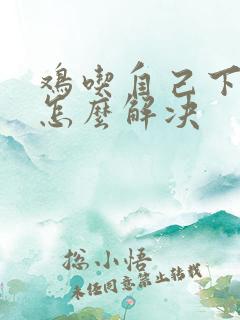 鸡喫自己下
怎麽解决
総小悟
未经同意禁止转载